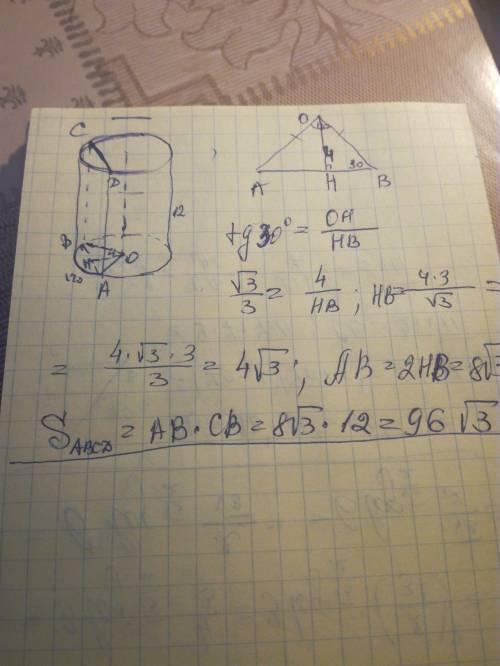 C
D
12
B
O
H
120
A
O
4
30
A
H
B
tg 30° = OH/HB
√3/3 = 4/HB ; HB = 4·3/√3 =
= 4·√3·3/3 = 4√3 ; AB = 2HB = 8√3
S_ABCD = AB · CB = 8√3 · 12 = 96 √3